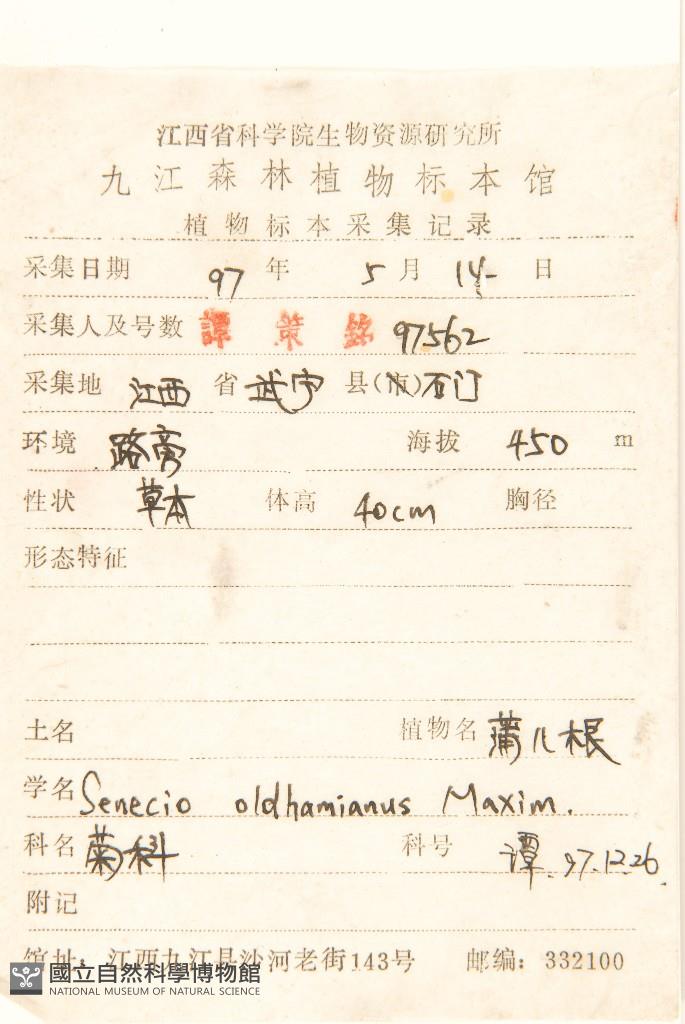 江西省科学院生物资源研究所
九江森林植物标本馆
植物标本采集记录
采集日期 97 年 5 月 14 日
采集人及号数 譚策銘 97562
采集地 江西 省 武宁 县(市) 石门
环境 路旁 海拔 450 m
性状 草本 体高 40cm 胸径
形态特征
土名 植物名 蒲儿根
学名 Senecio oldhamianus Maxim.
科名 菊科 科号 谭.97.12.26.
附记
馆址: 江西九江县沙河老街143号 邮编: 332100
國立自然科學博物館
NATIONAL MUSEUM OF NATURAL SCIENCE